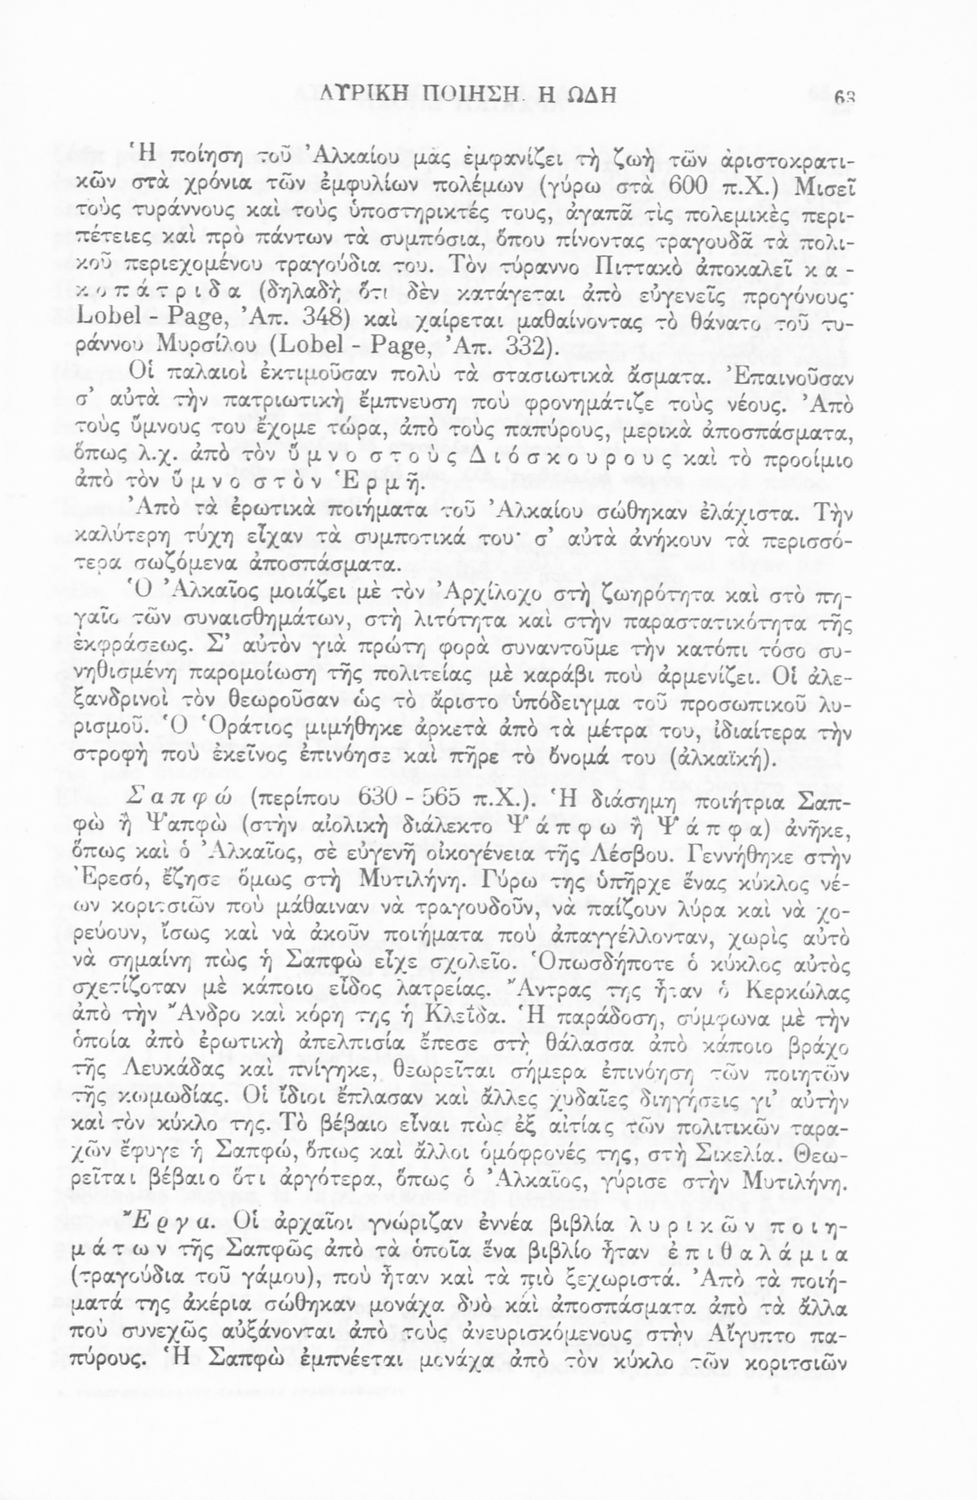 ΛΥΡΙΚΗ ΠΟΙΗΣΗ. Η ΩΔΗ 63
Ἡ ποίηση τοῦ Ἀλκαίου μᾶς ἐμφανίζει τὴ ζωὴ τῶν ἀριστοκρατι-
κῶν στὰ χρόνια τῶν ἐμφυλίων πολέμων (γύρω στὰ 600 π.Χ.) Μισεῖ
τοὺς τυράννους καὶ τοὺς ὑποστηρικτές τους, ἀγαπᾶ τὶς πολεμικὲς περι-
πέτειες καὶ πρὸ πάντων τὰ συμπόσια, ὅπου πίνοντας τραγουδᾶ τὰ πολι-
κοῦ περιεχομένου τραγούδια του. Τὸν τύραννο Πιττακὸ ἀποκαλεῖ κ α -
κ ο π ά τ ρ ι δ α (δηλαδὴ ὅτι δὲν κατάγεται ἀπὸ εὐγενεῖς προγόνους·
Lobel - Page, Ἀπ. 348) καὶ χαίρεται μαθαίνοντας τὸ θάνατο τοῦ τυ-
ράννου Μυρσίλου (Lobel - Page, Ἀπ. 332).
Οἱ παλαιοὶ ἐκτιμοῦσαν πολὺ τὰ στασιωτικὰ ἄσματα. Ἐπαινοῦσαν
σ’ αὐτὰ τὴν πατριωτικὴ ἔμπνευση ποὺ φρονημάτιζε τοὺς νέους. Ἀπὸ
τοὺς ὕμνους του ἔχομε τώρα, ἀπὸ τοὺς παπύρους, μερικὰ ἀποσπάσματα,
ὅπως λ.χ. ἀπὸ τὸν ὕ μ ν ο σ τ ο ὺ ς Δ ι ό σ κ ο υ ρ ο υ ς καὶ τὸ προοίμιο
ἀπὸ τὸν ὕ μ ν ο σ τ ὸ ν Ἑ ρ μ ῆ.
Ἀπὸ τὰ ἐρωτικὰ ποιήματα τοῦ Ἀλκαίου σώθηκαν ἐλάχιστα. Τὴν
καλύτερη τύχη εἶχαν τὰ συμποτικά του· σ’ αὐτὰ ἀνήκουν τὰ περισσό-
τερα σωζόμενα ἀποσπάσματα.
Ὁ Ἀλκαῖος μοιάζει μὲ τὸν Ἀρχίλοχο στὴ ζωηρότητα καὶ στὸ πη-
γαῖο τῶν συναισθημάτων, στὴ λιτότητα καὶ στὴν παραστατικότητα τῆς
ἐκφράσεως. Σ’ αὐτὸν γιὰ πρώτη φορὰ συναντοῦμε τὴν κατόπι τόσο συ-
νηθισμένη παρομοίωση τῆς πολιτείας μὲ καράβι ποὺ ἀρμενίζει. Οἱ ἀλε-
ξανδρινοὶ τὸν θεωροῦσαν ὡς τὸ ἄριστο ὑπόδειγμα τοῦ προσωπικοῦ λυ-
ρισμοῦ. Ὁ Ὁράτιος μιμήθηκε ἀρκετὰ ἀπὸ τὰ μέτρα του, ἰδιαίτερα τὴν
στροφὴ ποὺ ἐκεῖνος ἐπινόησε καὶ πῆρε τὸ ὄνομά του (ἀλκαϊκή).
Σ α π φ ώ (περίπου 630 - 565 π.Χ.). Ἡ διάσημη ποιήτρια Σαπ-
φὼ ἢ Ψαπφὼ (στὴν αἰολικὴ διάλεκτο Ψ ά π φ ω ἢ Ψ ά π φ α) ἀνῆκε,
ὅπως καὶ ὁ Ἀλκαῖος, σὲ εὐγενῆ οἰκογένεια τῆς Λέσβου. Γεννήθηκε στὴν
Ἐρεσό, ἔζησε ὅμως στὴ Μυτιλήνη. Γύρω της ὑπῆρχε ἕνας κύκλος νέ-
ων κοριτσιῶν ποὺ μάθαιναν νὰ τραγουδοῦν, νὰ παίζουν λύρα καὶ νὰ χο-
ρεύουν, ἴσως καὶ νὰ ἀκοῦν ποιήματα ποὺ ἀπαγγέλλονταν, χωρὶς αὐτὸ
νὰ σημαίνη πὼς ἡ Σαπφὼ εἶχε σχολεῖο. Ὁπωσδήποτε ὁ κύκλος αὐτὸς
σχετίζοταν μὲ κάποιο εἶδος λατρείας. Ἄντρας της ἦταν ὁ Κερκώλας
ἀπὸ τὴν Ἄνδρο καὶ κόρη της ἡ Κλεΐδα. Ἡ παράδοση, σύμφωνα μὲ τὴν
ὁποία ἀπὸ ἐρωτικὴ ἀπελπισία ἔπεσε στὴ θάλασσα ἀπὸ κάποιο βράχο
τῆς Λευκάδας καὶ πνίγηκε, θεωρεῖται σήμερα ἐπινόηση τῶν ποιητῶν
τῆς κωμωδίας. Οἱ ἴδιοι ἔπλασαν καὶ ἄλλες χυδαῖες διηγήσεις γι’ αὐτὴν
καὶ τὸν κύκλο της. Τὸ βέβαιο εἶναι πὼς ἐξ αἰτίας τῶν πολιτικῶν ταρα-
χῶν ἔφυγε ἡ Σαπφώ, ὅπως καὶ ἄλλοι ὁμόφρονές της, στὴ Σικελία. Θεω-
ρεῖται βέβαιο ὅτι ἀργότερα, ὅπως ὁ Ἀλκαῖος, γύρισε στὴν Μυτιλήνη.
Ἔ ρ γ α. Οἱ ἀρχαῖοι γνώριζαν ἐννέα βιβλία λ υ ρ ι κ ῶ ν π ο ι η -
μ ά τ ω ν τῆς Σαπφῶς ἀπὸ τὰ ὁποῖα ἕνα βιβλίο ἦταν ἐ π ι θ α λ ά μ ι α
(τραγούδια τοῦ γάμου), ποὺ ἦταν καὶ τὰ πιὸ ξεχωριστά. Ἀπὸ τὰ ποιή-
ματά της ἀκέρια σώθηκαν μονάχα δυὸ καὶ ἀποσπάσματα ἀπὸ τὰ ἄλλα
ποὺ συνεχῶς αὐξάνονται ἀπὸ τοὺς ἀνευρισκόμενους στὴν Αἴγυπτο πα-
πύρους. Ἡ Σαπφὼ ἐμπνέεται μονάχα ἀπὸ τὸν κύκλο τῶν κοριτσιῶν